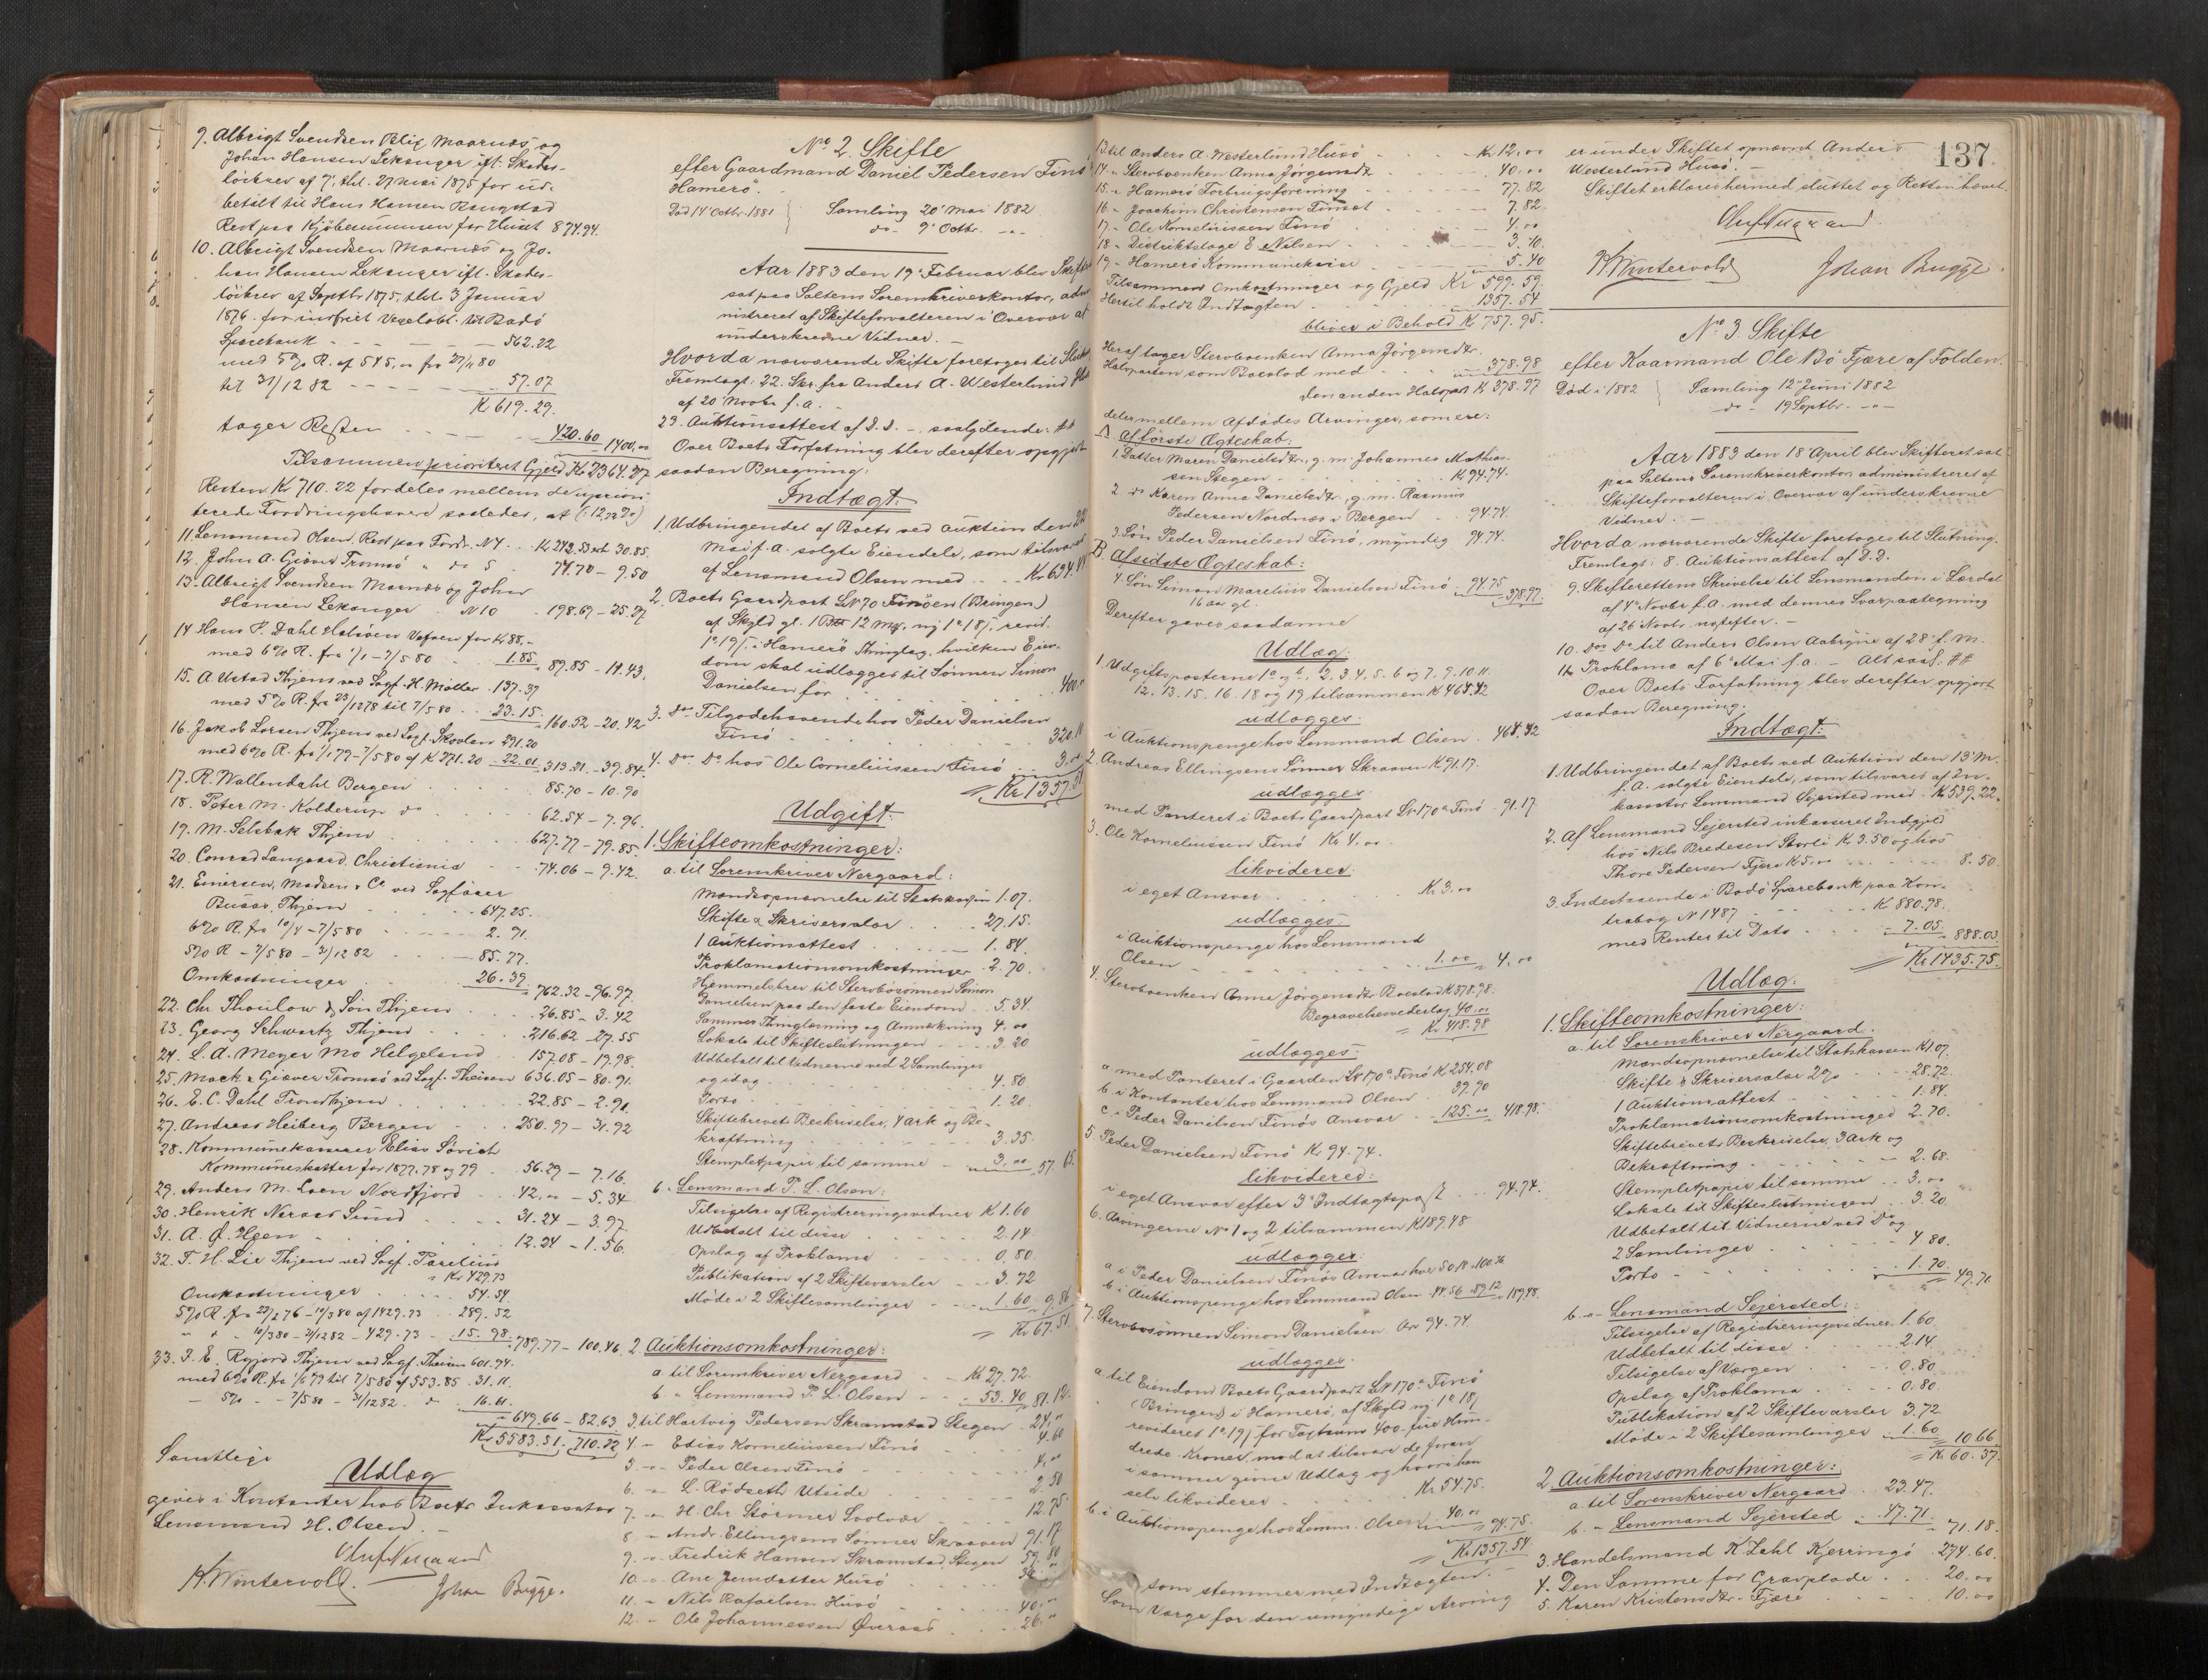 9. Albrigt Svendsen Blix Maarnæs og
Johan Hansen Lekanger ifl. Skades-
løsbrev af 7', thl. 27 Mai 1875 for ud-
betalt til Hans Hansen Rangstad
Rest paa Kjøbesummen for Huset 874.94.
10. Albrigt Svendsen Maarnæs og Jo-
han Hansen Lekanger ifl. Skades-
løsbrev af Septbr 1875, thl. 3 Januar
1876 for indfriet Vexelobl. til Bodø
Sparebank - - - 562.22
med 5% R. af 545,00 fra 27/11 80
til 31/12 82 - - - 57.07
Kr 619.29.
tager Resten - - - 420.60 1400,00
Tilsammen prioriteret Gjeld Kr 2364.27
Resten Kr 710.22 fordeles mellem de uprior-
terede Fordringshavere saaledes, at (: 12,72 %)
11. Lensmand Olsen, Rest paa Fordr. N 4 . . Kr 242.53 erh 30.85.
12. John A. Giæver Tromsø " do 5 . 74.70 - 9.50
13. Albrigt Svendsen Maarnæs og Johan
Hansen Lekanger . N 10 . 198.69 - 25.27
14 Hans P. Dahl Halsøen Vefsen for Kr 88,-
med 6% R. fra 1/1 - 7/5 80 1.85 89.85 - 11.43.
15. A. Ustad Thjem ved Sagf. H. Møller . 137.37
med 5% R. fra 23/12 78 til 7/5 80 . . 23.15. 160.52 - 20.42
16. Jakob Larsen Thjem ved Sagf. Skavlan 291.20
med 6% R. fra 1/1 79 - 7/5 80 af Kr 271.20 22.01 313.21 - 39.84.
17. R. Wallendahl Bergen . . . 85.70 - 10.90
18. Peter M. Kolderup do . . . 62.54 - 7.96.
19. M. Selsbak Thjem . . . 627.77 - 79.85.
20. Conrad Langaard, Christiania . . 74.06 - 9.42.
21. Einersen, Madsen & Co ved Sagfører
Buaas, Thjem . . . 647.25.
6% R. fra 10/4 - 7/5 80 - - - 2.91.
5% R - 7/5 80 - 31/12 82 - - - 85.77.
Omkostninger . . . 26.39. 762.32 - 96.97.
22. Chr Thaulow & Søn Thjem . . 26.85 - 3.42
23. Georg Schwartz Thjem . . . 216.62 - 27.55
24. L. A. Meyer Mo Helgeland . . 157.08 - 19.98.
25. Mack & Giæver Tromsø ved Sagf. Theisen 636.05 - 80.91.
26. E. C. Dahl Trondhjem . . . 22.85 - 2.91.
27. Andreas Heiberg Bergen . . . 250.97 - 31.92
28. Kommunekasserer Elias Sörvich
Kommuneskatter for 1877, 78 og 79 . . 56.29 - 7.16.
29. Anders M. Loen Nordfjord . . 42,00 - 5.34
30. Henrik Neraas Sund . . . 31.24 - 3.97.
31. A. O. Hgen . . . 12.24 - 1.56.
32. T. H. Lie Thjem ved Sagf. Parelius
Kr 429.73
Omkostninger . . . 54.54.
5% R. fra 27/1 76 - 10/3 80 af 1429.73 . 289.52
" " - 10/3 80 - 31/12 82 - 429.73 - 15.98. 789.77 - 100.46.
33. P. E. Rygjord Thjem ved Sagf. Theisen 601.74.
med 6% R. fra 1/6 79 til 7/5 80 af 553.85 . 31.11.
- 5% - - 7/5 80 - 31/12 82. do . 16.61.
649.66 - 82.63
Kr 5583.51. 710.22
Samtlige
Udlæg
gives i Kontanter hos Boets Inkassator
Lensmand H. Olsen. -
Oluf Nergaard
K. Wintervold. Johan Bugge.
No 2. Skifte
efter Gaardmand Daniel Pedersen Finø
Hamerø.
Død 14' Octbr. 1881 } Samling 20' Mai 1882
do - 9' Octbr. - " -
Aar 1883 den 19' Februar blev Skifte
sat paa Saltens Sorenskriverkontor, admi
nistreret af Skifteforvalteren i Overvær af
underskrevne Vidner. -
Hvorda nærværende Skifte foretoges til Slut
Fremlagt: 22. Skr. fra Anders A. Westerlund Hus
af 20 Novbr f. a. -
23. Auktionsattest af D. D. - saalydende: ##
Over Boets Forfatning blev derefter opgjort
saadan Beregning:
Indtægt:
1. Udbringendet af Boets ved Auktion den 22
Mai f. a. solgte Eiendele, som tilsvares
af Lensmand Olsen med . . Kr 634.
2. Boets Gaardpart LN 170 Finøen (Bringen)
af Skyld gl. 1 12 Mg, ny 1 o 18 /, revid.
1 o 19 /, i Hamerø Thinglag, hvilken Eien-
dom skal udlægges til Sønnen Simon
Danielsen for . . . 400,
3. Do Tilgodehavende hos Peder Danielsen
Finø - - - 320.
4. Do Do hos Ole Corneliussen Finø . . 3,
Kr 1357.
Udgift:
1. Skifteomkostninger:
a. til Sorenskriver Nergaard:
Mandsopnævnelse til Statskassen 1.07.
Skifte & Skriversalær . . . 27.15.
1 Auktionsattest . . . 1.84.
Proklamationsomkostninger . 2.70.
Hjemmelsbrev til Stervbosønnen Simon
Danielsen paa den faste Eiendom . . 5.34
Sammes Thinglæsning og Anmærkning 4.00
Lokale til Skifteslutningen . . . 3.20
Udbetalt til Vidnerne ved 2 Samlinger
og idag . . . 4.80.
Porto . . . 1.20.
Skiftebrevets Beskrivelse, 4 Ark og Be-
kræftning . . . 3.35.
Stempletpapir til samme - 3,00 57.65.
b - Lensmand P. L. Olsen:
Tilsigelse af Registreringsvidner K 1.60
Udbetalt til disse - - - 2.14
Opslag af Proklama - - - 0,80.
Publikation af 2 Skiftevarsler - - 3.72
Møde i 2 Skiftesamlinger - - 1.60 9.86
Kr 67.51
2. Auktionsomkostninger:
a. til Sorenskriver Nergaard - - Kr 27.72.
b - Lensmand P. L. Olsen - - 53.40 81.12.
3. til Hartvig Pedersen Skramstad Stegen . 24,
4. - Edias Korneliussen Finø - - 4.60
5. - Peder Olsen Finø - - 4,00
6. - L. Rødseth Utside - - 2.50
7. - H. Chr Størmer Svolvær - - 12.75
8 - Andr. Ellingsens Sønner Skraaven 91.17
9. - Fredrik Hansen Skramstad, Stegen 59.80
10. - Ane Jensdatter Husø . .
11. - Nils Rafaelsen Husø - - 40,00
12. - Ole Johannessen Øveraas . . 26.
137.
13 til Anders A. Westerlund Husø - - Kr 12,00
14. - Stervboenken Anna Jørgensdtr - - 40.00
15. - Hamerø Forbrugsforening - - 77.82
16 - Joachim Christensen Finset - - 7.82.
17. - Ole Korneliussen Finø - - 4.00
18 - Distriktslæge E. Nilsen - - 3.40.
19. - Hamerø Kommunekasse - - 5.40
Tilsammen Omkostninger og Gjeld Kr 599.59.
Hertil holdt Indtægten . . . 1357.54
bliver i Behold Kr 757.95.
Heraf tager Stervboenken Anna Jørgensdtr.
Halvparten som Boeslod med . . . 378.98
den anden Halvpart Kr 378.97
deles mellem Afdødes Arvinger, som ere:
A af første Ægteskab:
1. Datter Maren Danielsdtr., g. m. Johannes Mathias-
sen Stegen . . . Kr 94.74.
2 do Karen Anna Danielsdtr., g. m. Rasmus
Pedersen Nordnæs i Bergen . . 94.74.
3. Søn Peder Danielsen Finø, myndig 94.74.
B. Af sidste Ægteskab:
4. Søn Simon Marelius Danielsen Finø . 94.75 378.97.
16 Aar gl.
Derefter gaves saadanne
Udlæg:
1. Udgiftsposterne 1 a og b, 2, 3, 4, 5. 6 og 7. 9. 10. 11.
12. 13. 15. 16. 18 og 19 tilsammen Kr 464.42
udlægges:
i Auktionspenge hos Lensmand Olsen . 464.42
2. Andreas Ellingsens Sønner Skraaven Kr 91.17.
udlægges
med Panteret i Boets Gaardpart LN 170 a Finø . 91.17.
3. Ole Korneliussen Finø Kr 4.00.
likviderer:
i eget Ansvar . . . Kr 3.00
udlægges:
i Auktionspenge hos Lensmand
Olsen - - - 1.00 4.00
4. Stervboenken Anne Jørgensdtr Boeslod Kr 378.98.
Begravelsesvederlag 40.00
Kr 418.98
udlægges:
a. med Panteret i Gaarden LN 170 a Finø Kr 254.08
b. i Kontanter hos Lensmand Olsen . 39.90
c. i Peder Danielsen Finøs Ansvar . . 125.00 418.98.
5. Peder Danielsen Finø Kr 94.74.
likviderer:
i eget Ansvar efter 3' Indtægtspost . . 94.74.
6. Arvingerne No 1 og 2 tilsammen Kr 189.48
udlægges:
a. i Peder Danielsen Finøs Ansvar hver 50.18 - 100.36
b. i Auktionspenge hos Lensmand Olsen - 44.56 - 89.12 189.48.
7. Stervbosønnen Simon Danielsen Arv 94.74.
udlægges:
a. til Eiendom Boets Gaardpart LN 170 a Finø
(Bringen) i Hamerø, af Skyld ny 1 o 18 /,
revideret 1 o 19 / for Taxtsum 400 - fire Hun-
drede - Kroner, mod at tilsvare de foran
i samme givne Udlæg og hvori han
selv likviderer . . . Kr 54.75.
b. i Auktionspenge hos Lensm. Olsen 40.00 94.75.
Kr 1357.54
som stemmer med Indtægten. -
Som Værge for den umyndige Arving
er under Skiftet opnævnt Anders
Westerlund Husø. -
Skiftet erklæres hermed sluttet og Retten hævet.
Oluf Nergaard
K Wintervold Johan Bugge.
No 3. Skifte
efter Kaarmand Ole Bø Fjære af Folden.
Død i 1882 } Samling 12te Juni 1882
do - 19 Septbr. - " -
Aar 1883 den 18' April blev Skifteret sat
paa Saltens Sorenskriverkontor, administreret af
Skifteforvalteren i Overvær af underskrevne
Vidner. -
Hvorda nærværende Skifte foretoges til Slutning.
Fremlagt: 8. Auktionsattest af D. D.
9. Skifterettens Skrivelse til Lensmanden i Lærdal
af 4' Novbr f. a. med dennes Svarpaategning
af 26 Novbr. næstefter. -
10. Do Do til Anders Olsen Aabrygne af 28' f. M.
11. Proklama af 6' Mai f. a. - Alt saal: ##
Over Boets Forfatning blev derefter opgjort
saadan Beregning:
Indtægt:
1. Udbringendet af Boets ved Auktion den 13' M.
f. A. solgte Eiendele, som tilsvares af In-
kassator Lensmand Sejersted med . Kr 539.22.
2. Af Lensmand Sejersted inkasseret Indgjeld
hos Nils Bredesen Storli Kr 3.50 og hos
Thore Pedersen Fjære Kr 5,00 . . . 8.50.
3. Indestaaende i Bodø Sparebank paa Kon-
trabog N 1487 . . . Kr 880.98.
med Renter til Dato . . . 7.05. 888.03.
Kr 1435.75.
Udlæg:
1. Skifteomkostninger:
a. til Sorenskriver Nergaard:
Mandsopnævnelse til Statskassen Kr 1.07.
Skifte & Skriversalær 2% . . 28.72.
1 Auktionsattest - - - 1.84.
Proklamationsomkostninger 2.70.
Skiftebrevets Beskrivelse, 3 Ark og
Bekræftning . . . 2.68.
Stempletpapir til samme . . 3,00
Lokale til Skifteslutningen . . 3.20
Udbetalt til Vidnerne ved Do og
2 Samlinger . . . 4.80.
Porto - - - 1.70. 49.71
b. - Lensmand Sejersted:
Tilsigelse af Registreringsvidner 1.60.
Udbetalt til disse . . . 2.14.
Tilsigelse af Værgen . . . 0.80
Opslag af Proklama . . . 0.80
Publikation af 2 Skiftevarsler 3.72
Møde i 2 Skiftesamlinger 1.60 10.66
Kr 60.37.
2. Auktionsomkostninger:
a. til Sorenskriver Nergaard . 23.47.
b. - Lensmand Sejersted . 47.71. 71.18.
3. Handelsmand K. Zahl Kjerringø . 274.60.
4. Den Samme for Gravplade . . 20.00
5. Karen Kristensdtr. Fjære . . 10.00